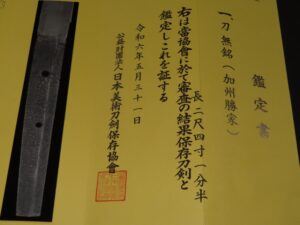 鑑定書
一、刀 無銘（加州勝家）
長二尺四寸一分半
右は當協會に於て審査の結果保存刀剣と
鑑定しこれを証する
令和六年五月三十一日
公益財団法人日本美術刀剣保存協會